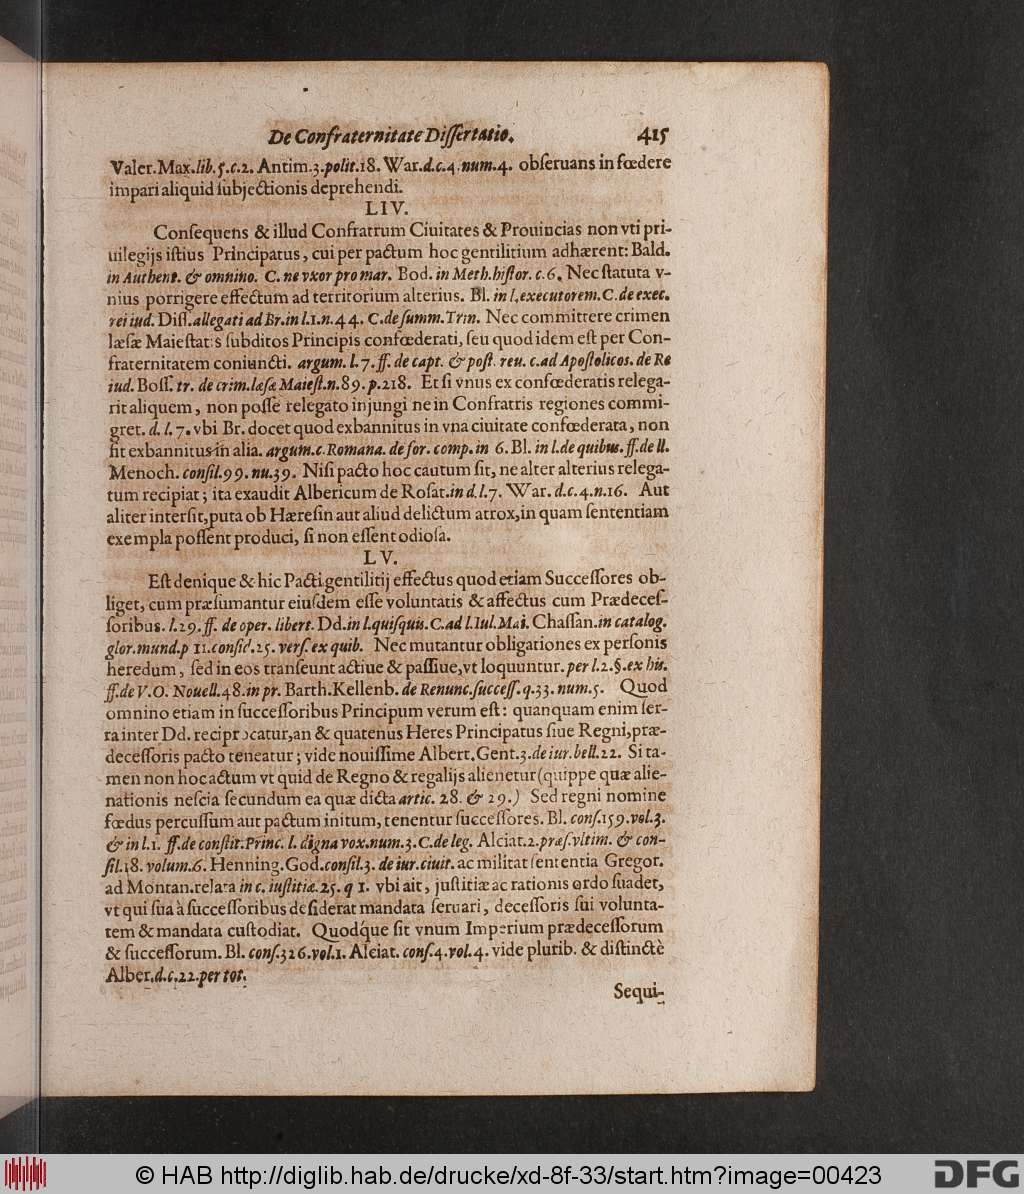 De Confraternitate Dissertatio. 415
Valer. Max. lib. 5. c. 2. Antim. 3. polit. 18. War. d. c. 4. num. 4. obseruans in fœdere
impari aliquid subjectionis deprehendi.
LIV.
Consequens & illud Confratrum Ciuitates & Prouincias non vti pri-
uilegijs istius Principatus, cui per pactum hoc gentilitium adhærent: Bald.
in Authent. & omnino. C. ne vxor pro mar. Bod. in Meth. histor. c. 6. Nec statuta v-
nius porrigere effectum ad territorium alterius. Bl. in l. executorem. C. de exec.
rei iud. Dist. allegati ad Br. in l. 1. n. 44. C. de summ. Trin. Nec committere crimen
læsæ Maiestatis subditos Principis confœderati, seu quod idem est per Con-
fraternitatem coniuncti. argum. l. 7. ff. de capt. & post. reu. c. ad Apostolicos. de Re
iud. Boss. tr. de crim. læsæ Maiest. n. 89. p. 218. Et si vnus ex confœderatis relega-
rit aliquem, non posse relegato injungi ne in Confratris regiones commi-
gret. d. l. 7. vbi Br. docet quod exbannitus in vna ciuitate confœderata, non
sit exbannitus in alia. argum. c. Romana. de for. comp. in 6. Bl. in l. de quibus. ff. de ll.
Menoch. consil. 99. nu. 39. Nisi pacto hoc cautum sit, ne alter alterius relega-
tum recipiat; ita exaudit Albericum de Rosat. in d. l. 7. War. d. c. 4. n. 16. Aut
aliter intersit, puta ob Hæresin aut aliud delictum atrox, in quam sententiam
exempla possent produci, si non essent odiosa.
LV.
Est denique & hic Pacti gentilitij effectus quod etiam Successores ob-
liget, cum præsumantur eiusdem esse voluntatis & affectus cum Prædeces-
soribus. l. 29. ff. de oper. libert. Dd. in l. quisquis. C. ad l. Iul. Mai. Chassan. in catalog.
glor. mund. p 11. consid. 25. vers. ex quib. Nec mutantur obligationes ex personis
heredum, sed in eos transeunt actiue & passiue, vt loquuntur. per l. 2. §. ex his.
ff. de V. O. Nouell. 48. in pr. Barth. Kellenb. de Renunc. success. q. 33. num. 5. Quod
omnino etiam in successoribus Principum verum est: quanquam enim ser-
ra inter Dd. reciprocatur, an & quatenus Heres Principatus siue Regni, præ-
decessoris pacto teneatur; vide nouissime Albert. Gent. 3. de iur. bell. 22. Si ta-
men non hoc actum vt quid de Regno & regalijs alienetur (quippe quæ alie-
nationis nescia secundum ea quæ dicta artic. 28. & 29.) Sed regni nomine
fœdus percussum aut pactum initum, tenentur successores. Bl. cons. 159. vol. 3.
& in l. 1. ff. de constit. Princ. l. digna vox. num. 3. C. de leg. Alciat. 2. præs. vltim. & con-
sil. 18. volum. 6. Henning. God. consil. 3. de iur. ciuit. ac militat sententia Gregor.
ad Montan. relata in c. iustitiæ. 25. q 1. vbi ait, justitiæ ac rationis ordo suadet,
vt qui sua à successoribus desiderat mandata seruari, decessoris sui volunta-
tem & mandata custodiat. Quodq́ue sit vnum Imperium prædecessorum
& successorum. Bl. cons. 326. vol. 1. Alciat. cons. 4. vol. 4. vide plurib. & distinctè
Alber. d. c. 22. per tot.
Sequi-
© HAB http://diglib.hab.de/drucke/xd-8f-33/start.htm?image=00423
DFG